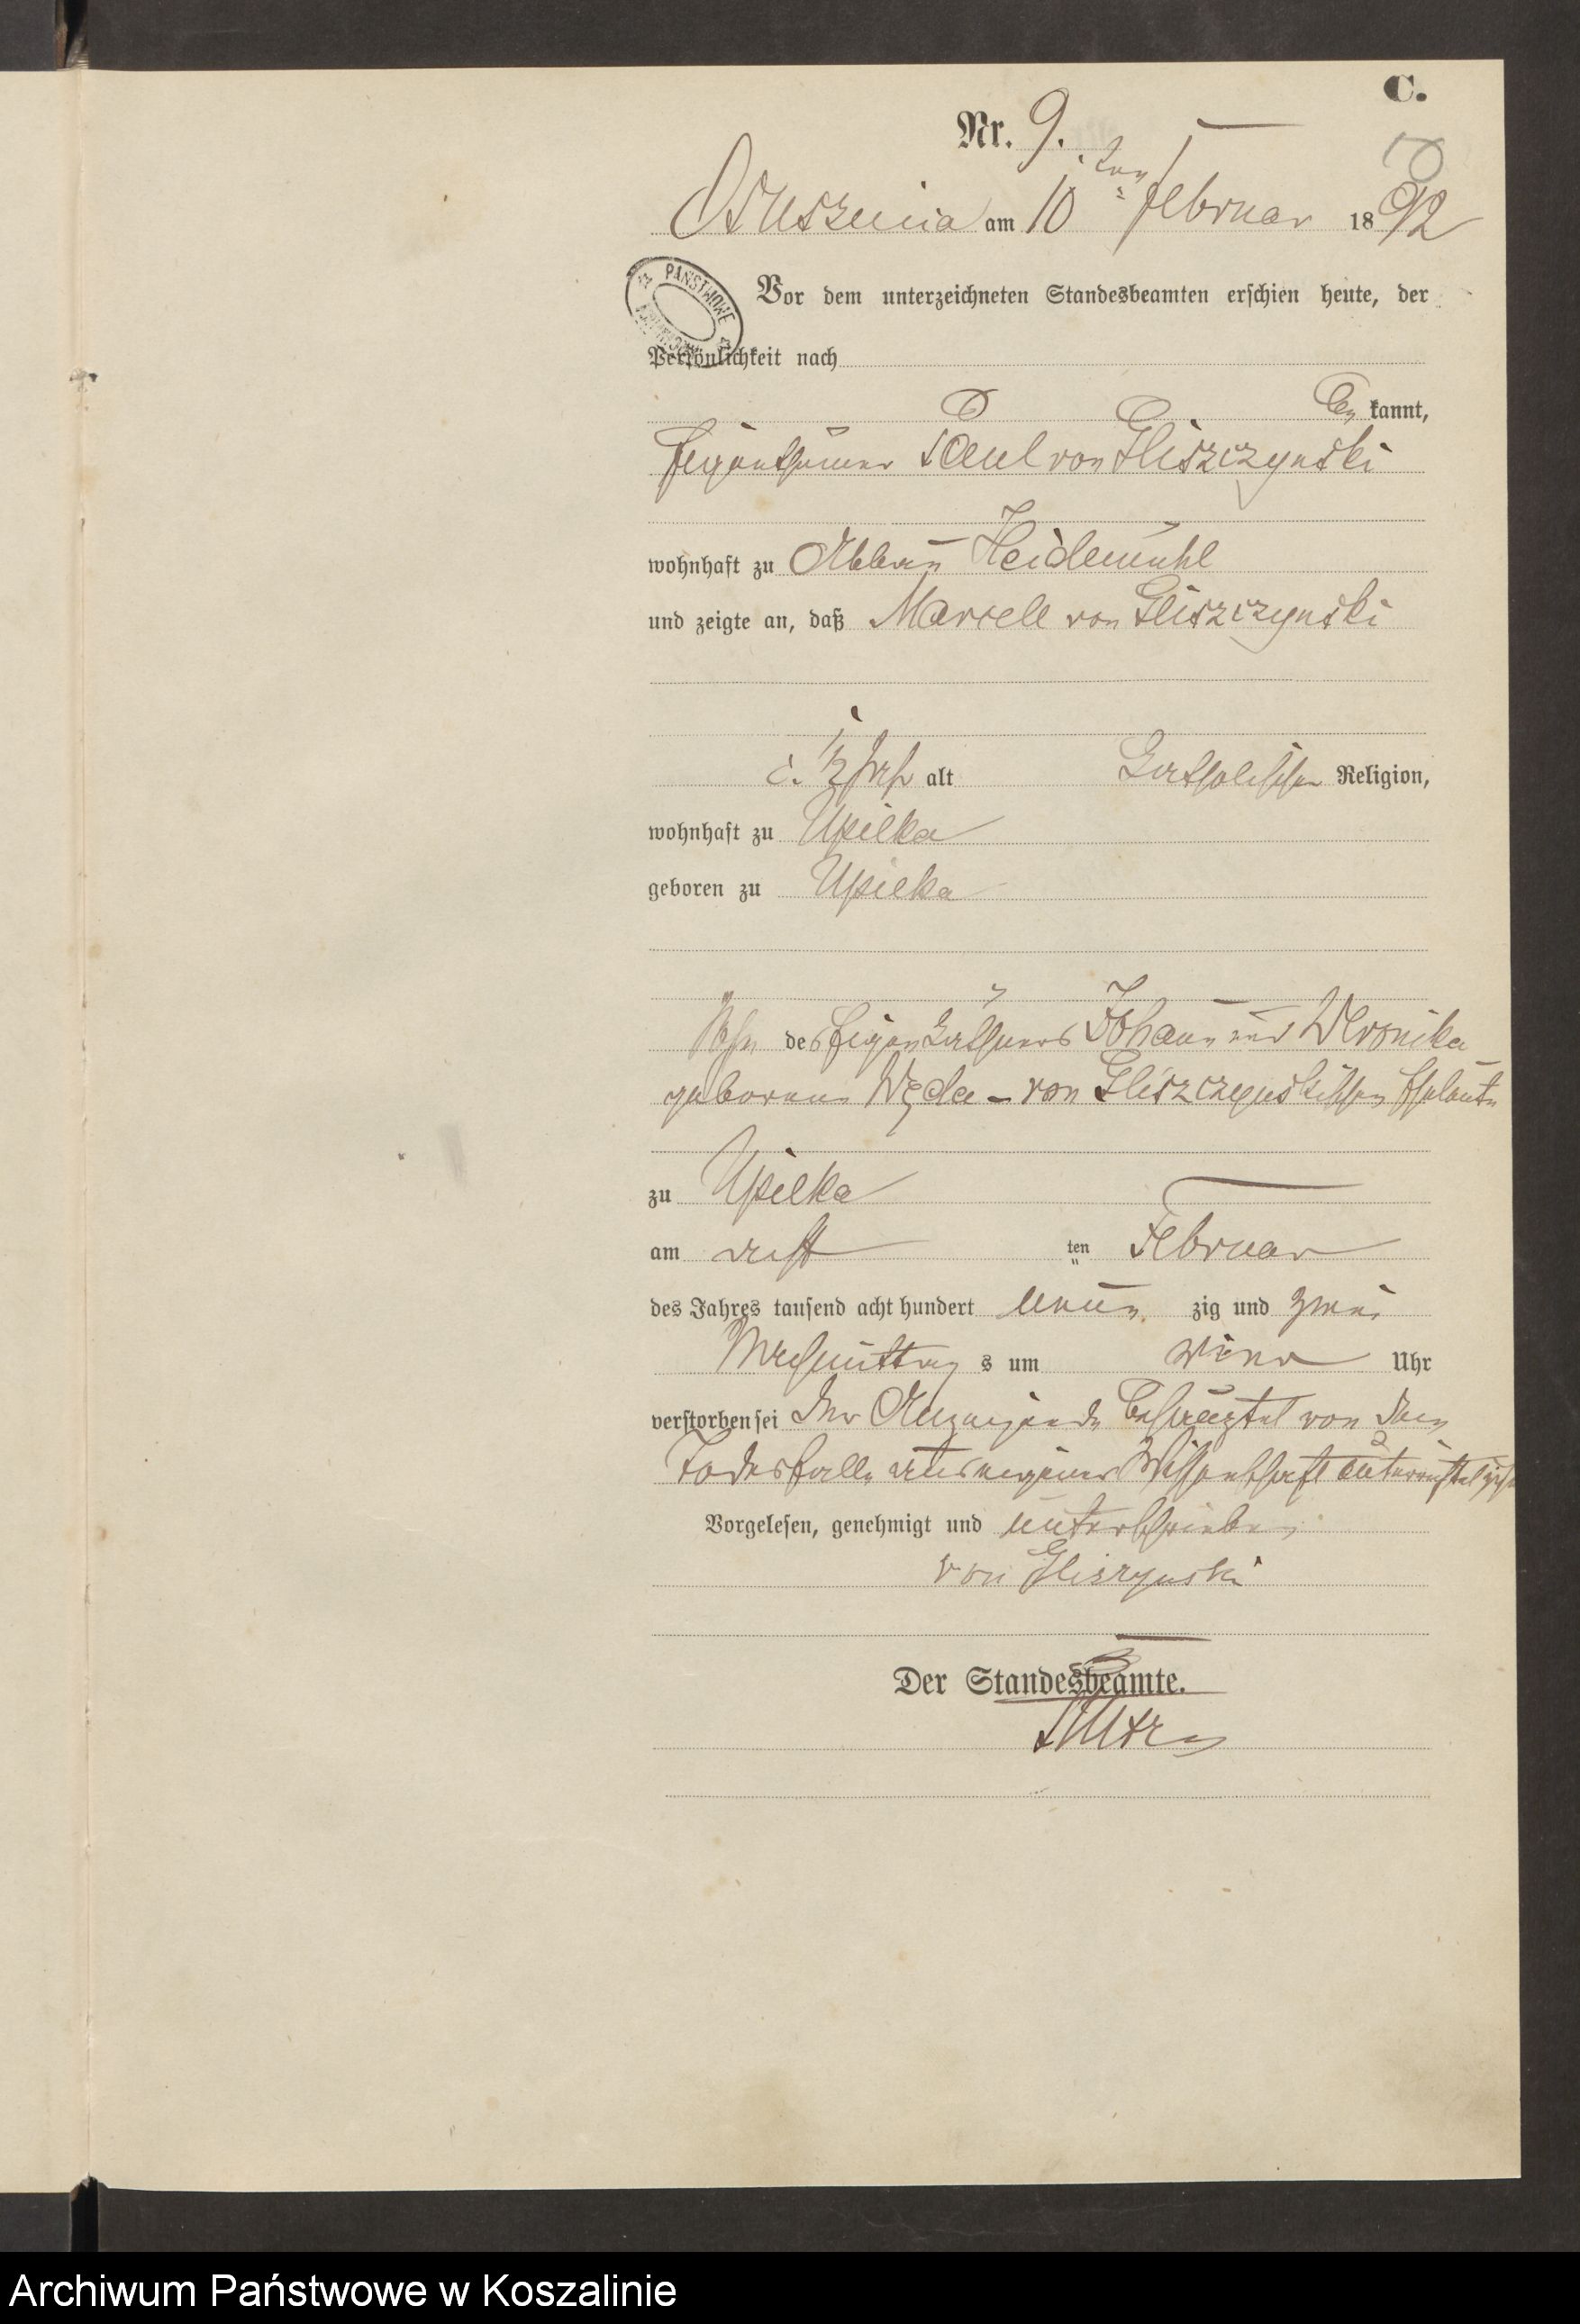 C.
Nr. 9.
Ostuszenica am 10 ten Februar 1892
PAŃSTWOWE
Vor dem unterzeichneten Standesbeamten erschien heute, der
Persönlichkeit nach
be kannt,
Eigenthümer Paul von Gliszczynski
wohnhaft zu Abbau Heidemühl
und zeigte an, daß Marcell von Gliszczynski
1/2 Jahr alt katholischer Religion,
wohnhaft zu Upilka
geboren zu Upilka
Sohn des Eigenkäthners Johann und Weronika
geborene Węda - von Gliszczynskischen Eheleute
zu Upilka
am acht ten Februar
des Jahres tausend acht hundert neun zig und zwei
Nachmittag s um vier Uhr
verstorben sei Der Anzeigende von dem
Todesfalle aus eigener Wissenschaft unterrichtet
Vorgelesen, genehmigt und unterschrieben
von Gliszynski
Der Standesbeamte.
Archiwum Państwowe w Koszalinie